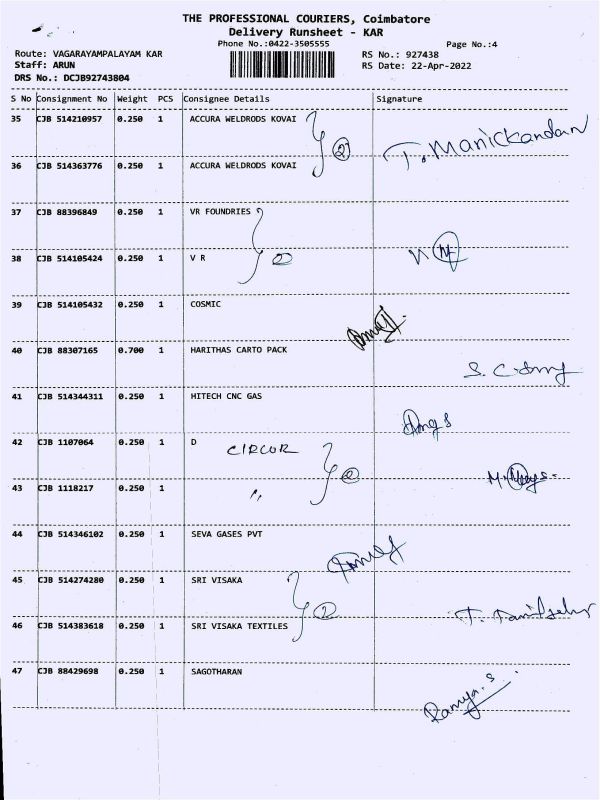 THE PROFESSIONAL COURIERS, Coimbatore
Delivery Runsheet - KAR
Phone No.:0422-3505555
Page No.:4
Route: VAGARAYAMPALAYAM KAR
RS No.: 927438
Staff: ARUN
RS Date: 22-Apr-2022
DRS No.: DCJB92743804
S No Consignment No Weight PCS Consignee Details Signature
35 CJB 514210957 0.250 1 ACCURA WELDRODS KOVAI
2 T. Manickandan
36 CJB 514363776 0.250 1 ACCURA WELDRODS KOVAI
37 CJB 88396849 0.250 1 VR FOUNDRIES
38 CJB 514105424 0.250 1 V R 2
39 CJB 514105432 0.250 1 COSMIC
40 CJB 88307165 0.700 1 HARITHAS CARTO PACK
41 CJB 514344311 0.250 1 HITECH CNC GAS
42 CJB 1107064 0.250 1 D CIRCOR
2
43 CJB 1118217 0.250 1 "
44 CJB 514346102 0.250 1 SEVA GASES PVT
45 CJB 514274280 0.250 1 SRI VISAKA
2
46 CJB 514383618 0.250 1 SRI VISAKA TEXTILES
47 CJB 88429698 0.250 1 SAGOTHARAN
Ramya. S